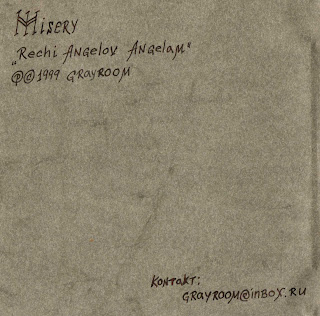 Misery
„Rechi Angelov Angelam"
℗©1999 GRAYROOM
Kontakt:
GRAYROOM@inbox.ru